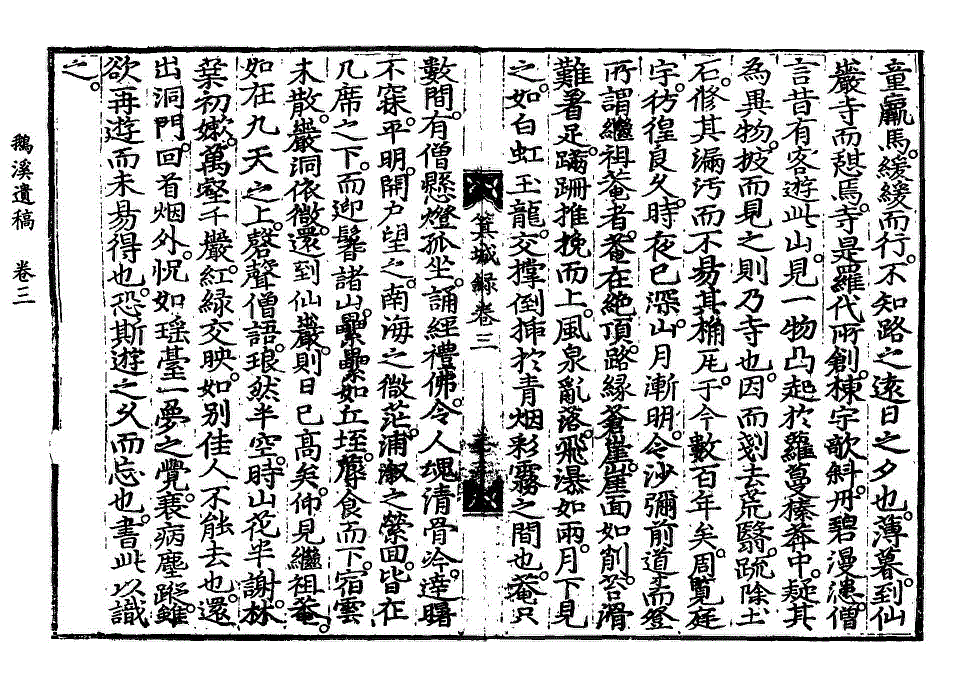 童羸馬緩緩而行。不知路之遠日之夕也。薄暮到仙
巖寺而憇焉。寺是羅代所創。棟宇欹斜。丹碧漫漶。僧
言昔有客遊此山。見一物凸起於蘿蔓榛莽中。疑其
為異物。披而見之則乃寺也。因而剗去荒翳。疏除土
石。修其漏污而不易其桷瓦。于今數百年矣。周覽庭
宇。彷徨良久。時夜已深。山月漸明。令沙彌前道而登
所謂繼祖菴者。菴在絶頂。路緣蒼崖。崖面如削。苔滑
難着足。蹣跚推挽而上。風泉亂落。飛瀑如雨。月下見
之。如白虹玉龍。交撑倒揷於青烟彩霧之間也。菴只
箕城録卷三
數間。有僧懸燈孤坐。誦經禮佛。令人魂清骨冷。達曙
不寐。平明。開户望之。南海之微茫。浦溆之縈回。皆在
几席之下。而迎鬟諸山。纍纍如丘垤。蓐食而下。宿雲
未散。巖洞依微。還到仙巖。則日已高矣。仰見繼祖菴。
如在九天之上。磬聲僧語。琅然半空。時山花半謝。林
葉初嫰。萬壑千巖。紅緑交映。如别佳人不能去也。還
出洞門。回首烟外。怳如瑶臺一夢之覺。衰病塵蹤。雖
欲再遊而未易得也。恐斯遊之久而忘也。書此以識
之。
鵝溪遺稿 卷三